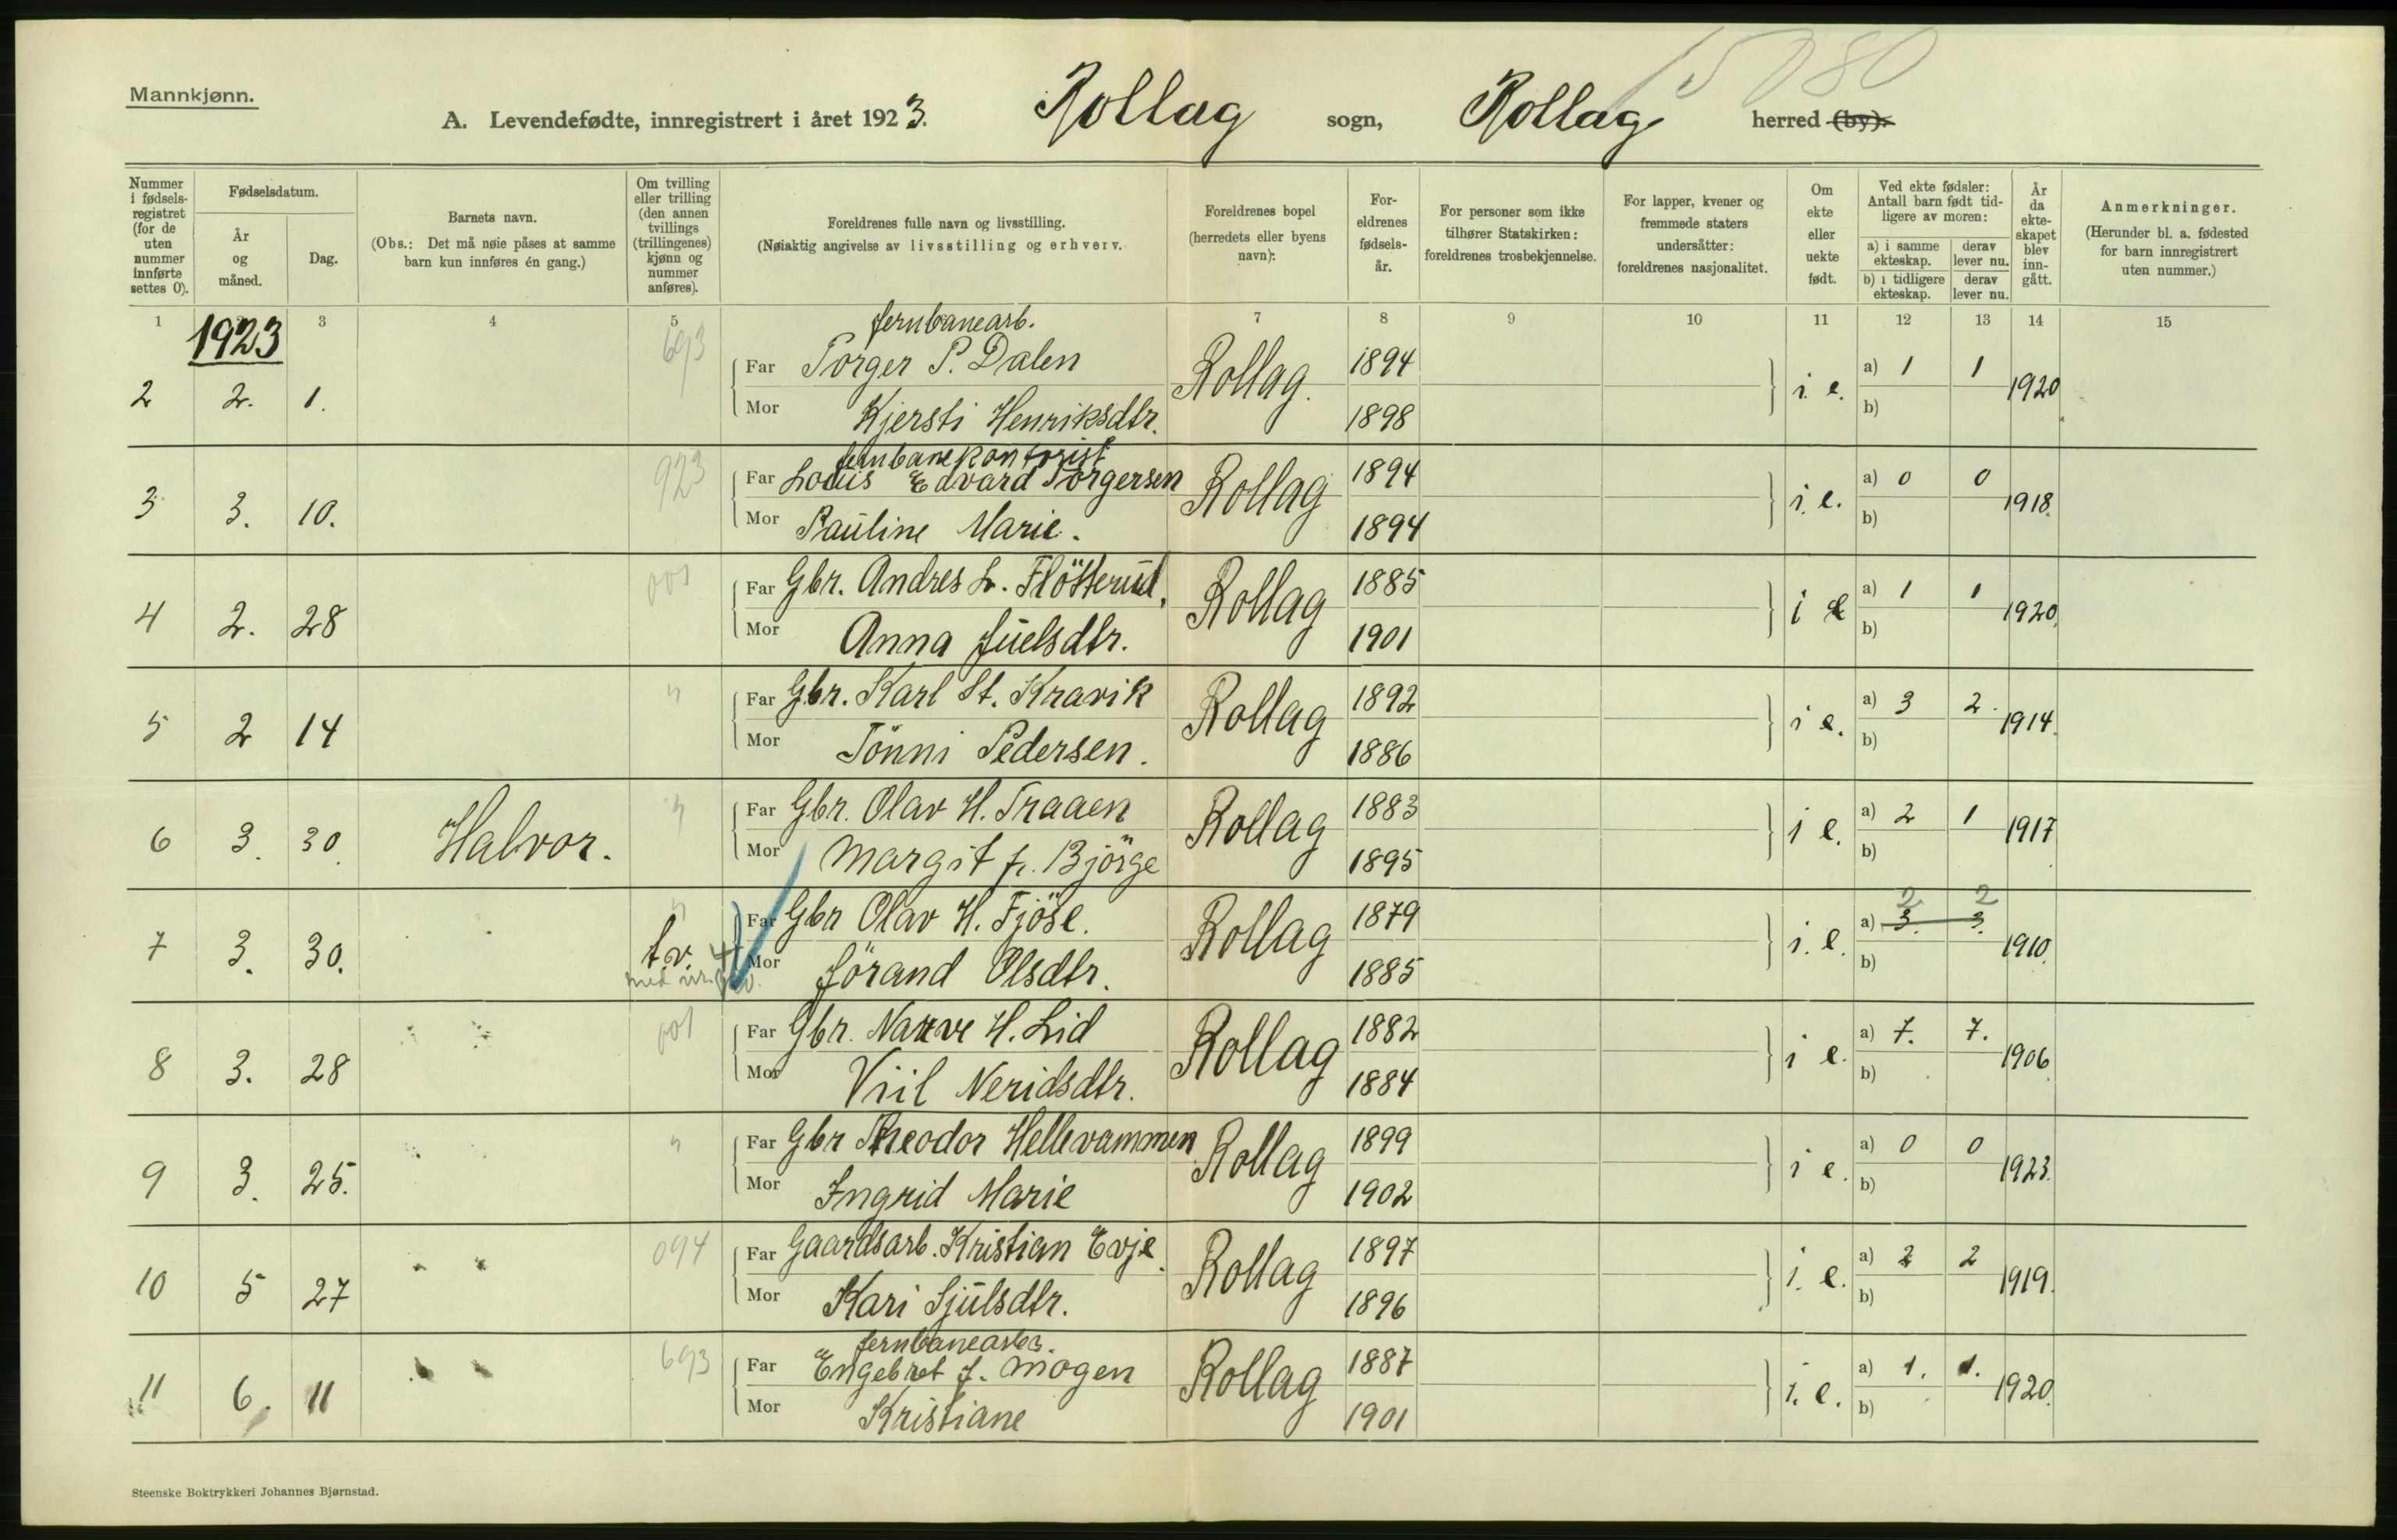 15080
Mannkjønn.
A. Levendefødte, innregistrert i året 1923. Rollag sogn, Rollag herred (by).
Nummer i fødsels-registret (for de uten nummer innførte settes 0).
Fødselsdatum.
År og måned.
Dag.
Barnets navn.
(Obs.: Det må nøie påses at samme barn kun innføres én gang.)
Om tvilling eller trilling (den annen tvillings (trillingenes) kjønn og nummer anføres).
Foreldrenes fulle navn og livsstilling.
(Nøiaktig angivelse av livsstilling og erhverv.
Foreldrenes bopel (herredets eller byens navn).
For-eldrenes fødsels-år.
For personer som ikke tilhører Statskirken: foreldrenes trosbekjennelse.
For lapper, kvener og fremmede staters undersåtter: foreldrenes nasjonalitet.
Om ekte eller uekte født.
Ved ekte fødsler: Antall barn født tid-ligere av moren:
a) i samme ekteskap. derav lever nu.
b) i tidligere ekteskap. derav lever nu.
År da ekte-skapet blev inn-gått.
Anmerkninger.
(Herunder bl. a. fødested for barn innregistrert uten nummer.)
1 3 4 5 7 8 9 10 11 12 13 14 15
1923
693 Jernbanearb.
Far Torger P. Dalen 1894 a) 1 1
2 2. 1. Rollag. i. e. 1920
Mor Kjersti Henriksdtr. 1898 b)
923 Jernbanekontorist
Far Louis Edvard Torgersen 1894 a) 0 0
3 3. 10. Rollag i. e. 1918.
Mor Pauline Marie. 1894 b)
001 Far Gbr. Andres L. Flötterud. 1885 a) 1 1
4 2. 28 Rollag i e 1920.
Mor Anna Juelsdtr. 1901 b)
" Far Gbr. Karl St. Kravik 1892 a) 3 2.
5 2 14 Rollag i e. 1914.
Mor Tönni Pedersen. 1886 b)
" Far Gbr. Olav H. Traaen 1883 a) 2 1
6 3. 30. Halvor. Rollag i e. 1917
Mor Margit f. Björge 1895 b)
" 2 2
Far Gbr Olav H. Fjöse. 1879 a) 3. 3.
7 3. 30. tv. Rollag i. e. 1910.
Mor Jörand Olsdtr. 1885 b)
001 Far Gbr. Narve H. Lid 1882 a) 7. 7.
8 3. 28 Rollag i e. 1906.
Mor Viil Neridsdtr. 1884 b)
" Far Gbr Theodor Hellevammen 1899 a) 0 0
9 3. 25. Rollag i e. 1923.
Mor Ingrid Marie 1902 b)
094 Far Gaardsarb. Kristian Evje. 1897 a) 2 2
10 5 27 Rollag i. e. 1919.
Mor Kari Sjulsdtr. 1896 b)
693 Jernbanearb.
Far Engebret J. Mogen 1887 a) 1. 1.
11 6. 11 Rollag i. e. 1920.
Mor Kristiane 1901 b)
Steenske Boktrykkeri Johannes Bjørnstad.